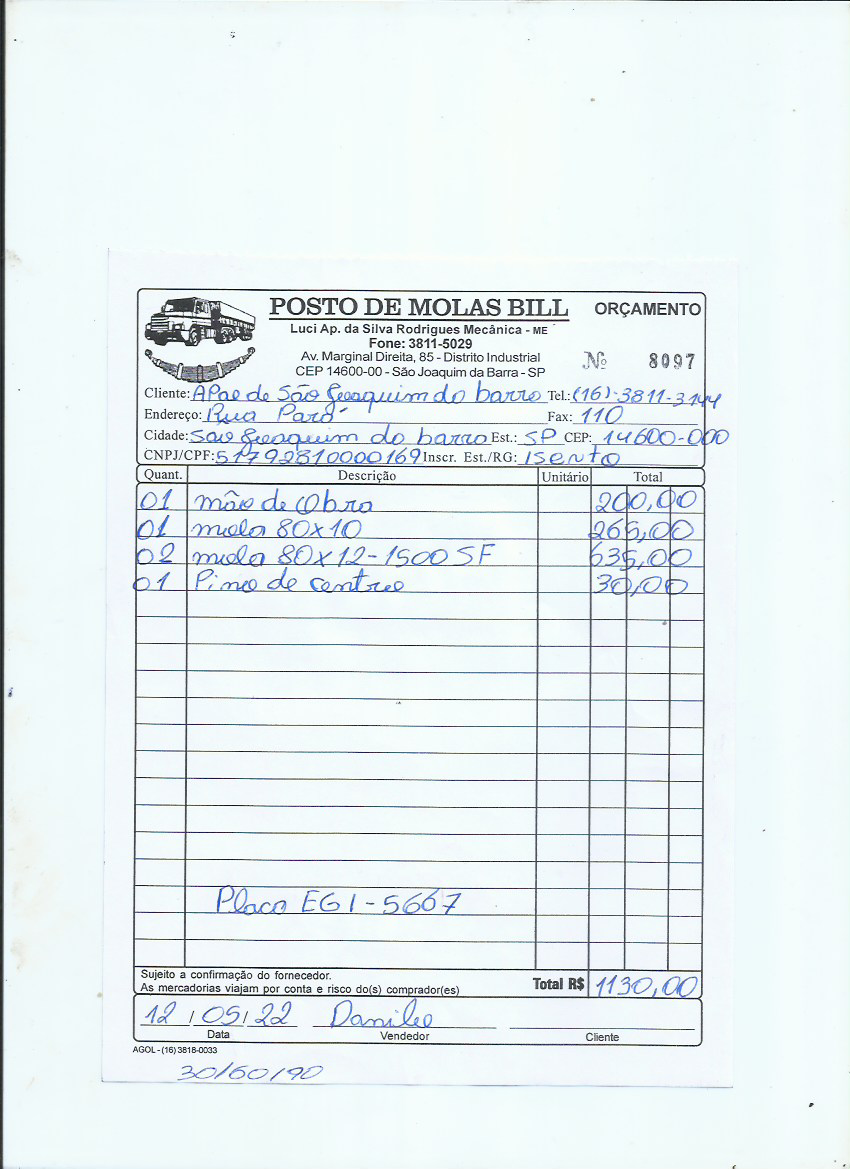 POSTO DE MOLAS BILL ORÇAMENTO
Luci Ap. da Silva Rodrigues Mecânica - ME
Fone: 3811-5029
Av. Marginal Direita, 85 - Distrito Industrial
CEP 14600-00 - São Joaquim da Barra - SP
Nº 8097
Cliente: APae de São Joaquim do barra Tel.: (16)-3811-3144
Endereço: Rua Pará Fax: 110
Cidade: São Joaquim do barra Est.: SP CEP: 14600-000
CNPJ/CPF: 51792810000169 Inscr. Est./RG: Isento
Quant. Descrição Unitário Total
01 mão de Obra 200,00
01 mola 80x10 265,00
02 mola 80x12-1500 SF 635,00
01 Pino de centro 30,00
Placa EGI-5667
Sujeito a confirmação do fornecedor.
As mercadorias viajam por conta e risco do(s) comprador(es)
Total R$ 1130,00
12 / 05 / 22 Danilo
Data Vendedor Cliente
AGOL - (16) 3818-0033
30/60/90